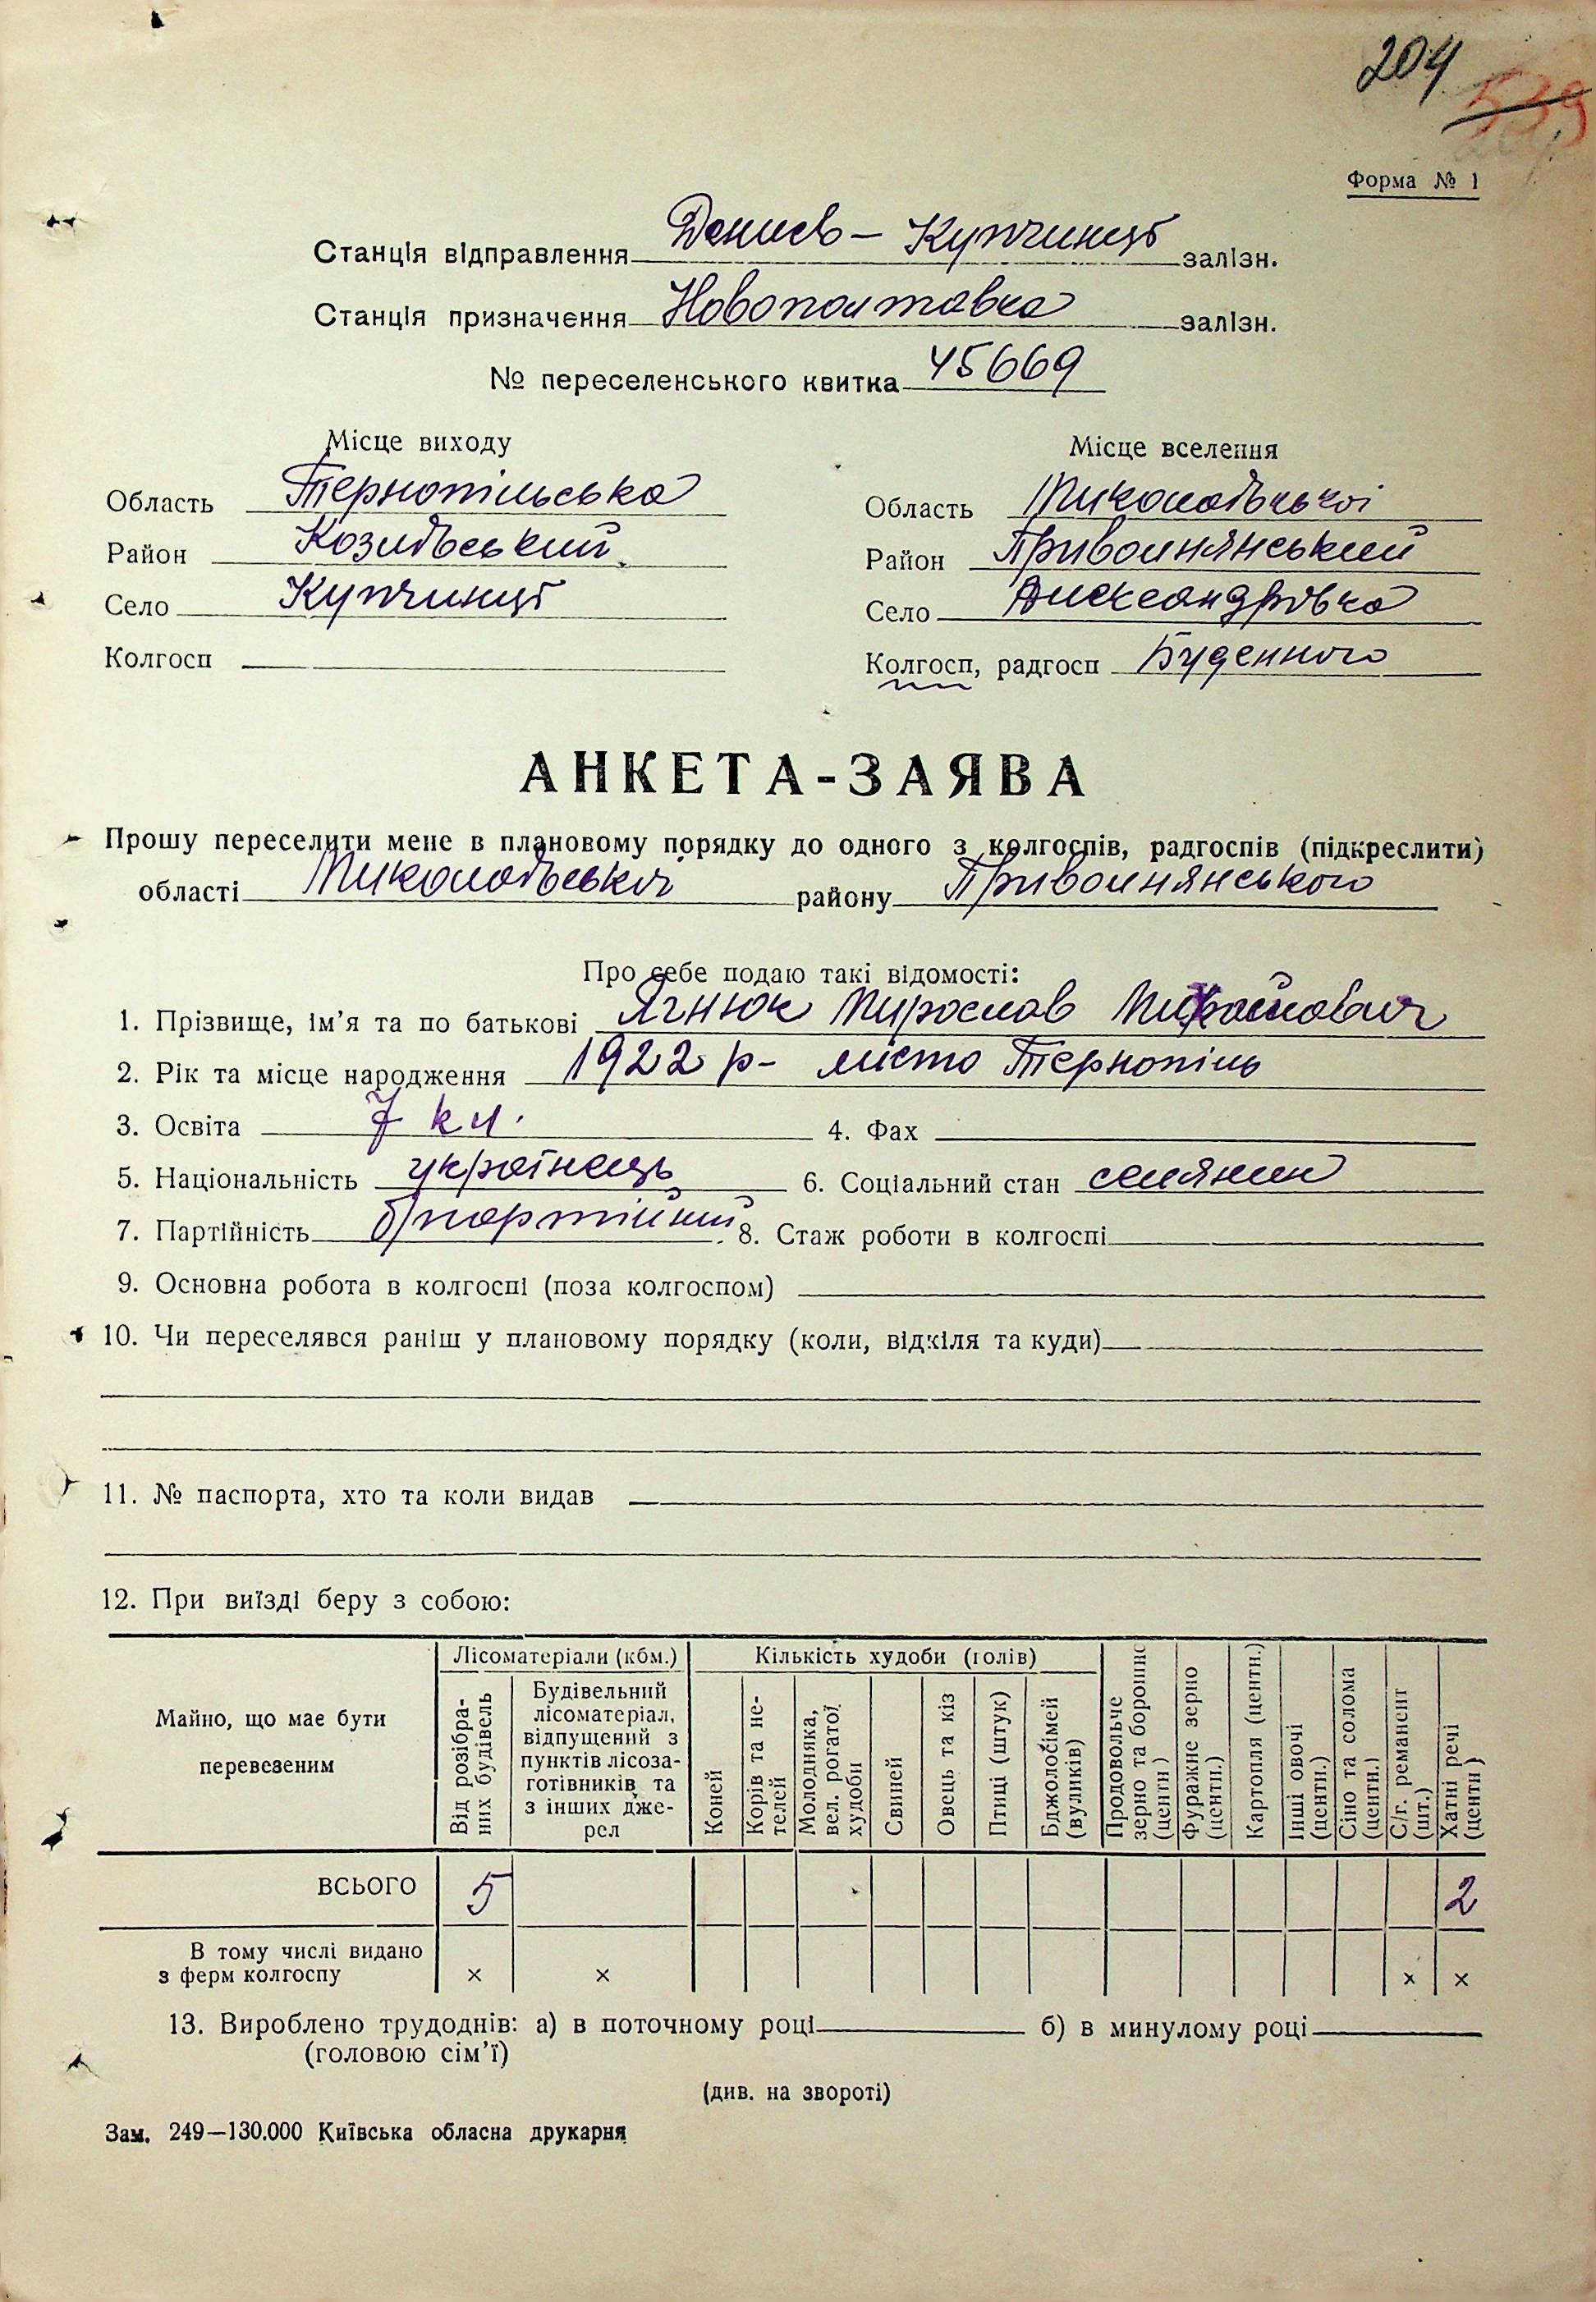 204
539
Форма № 1
Станція відправлення Денисів – Купчинці залізн.
Станція призначення Новополтавка залізн.
№ переселенського квитка 45669
Місце виходу
Область Тернопільська
Район Козівський
Село Купчинці
Колгосп
Місце вселення
Область Миколаївської
Район Привольнянський
Село Александрівка
Колгосп, радгосп Буденного
АНКЕТА-ЗАЯВА
Прошу переселити мене в плановому порядку до одного з колгоспів, радгоспів (підкреслити)
області Миколаївській району Привольнянського
Про себе подаю такі відомості:
1. Прізвище, ім’я та по батькові Ягнюк Мирослав
2. Рік та місце народження 1922 р – місто Тернопіль
3. Освіта 7 кл. 4. Фах
5. Національність українець 6. Соціальний стан селянин
7. Партійність б/партійний 8. Стаж роботи в колгоспі
9. Основна робота в колгоспі (поза колгоспом)
10. Чи переселявся раніш у плановому порядку (коли, відкіля та куди)
11. № паспорта, хто та коли видав
12. При виїзді беру з собою:
Майно, що має бути
перевезеним
Лісоматеріали (кбм.)
Від розібра-
них будівель
Будівельний
лісоматеріал,
відпущений з
пунктів лісоза-
готівників та
з інших дже-
рел
Кількість худоби (голів)
Коней
Корів та не-
телей
Молодняка,
вел. рогатої
худоби
Свиней
Овець та кіз
Птиці (штук)
Бджолосімей
(вуликів)
Продовольче
зерно та борошно
(центн)
Фуражне зерно
(центн.)
Картопля (центн.)
Інші овочі
(центн.)
Сіно та солома
(центн.)
С/г. реманент
(шт.)
Хатні речі
(центн)
ВСЬОГО 5 2
В тому числі видано
з ферм колгоспу × × × ×
13. Вироблено трудоднів: а) в поточному році б) в минулому році
(головою сім’ї)
(див. на звороті)
Зам. 249—130.000 Київська обласна друкарня